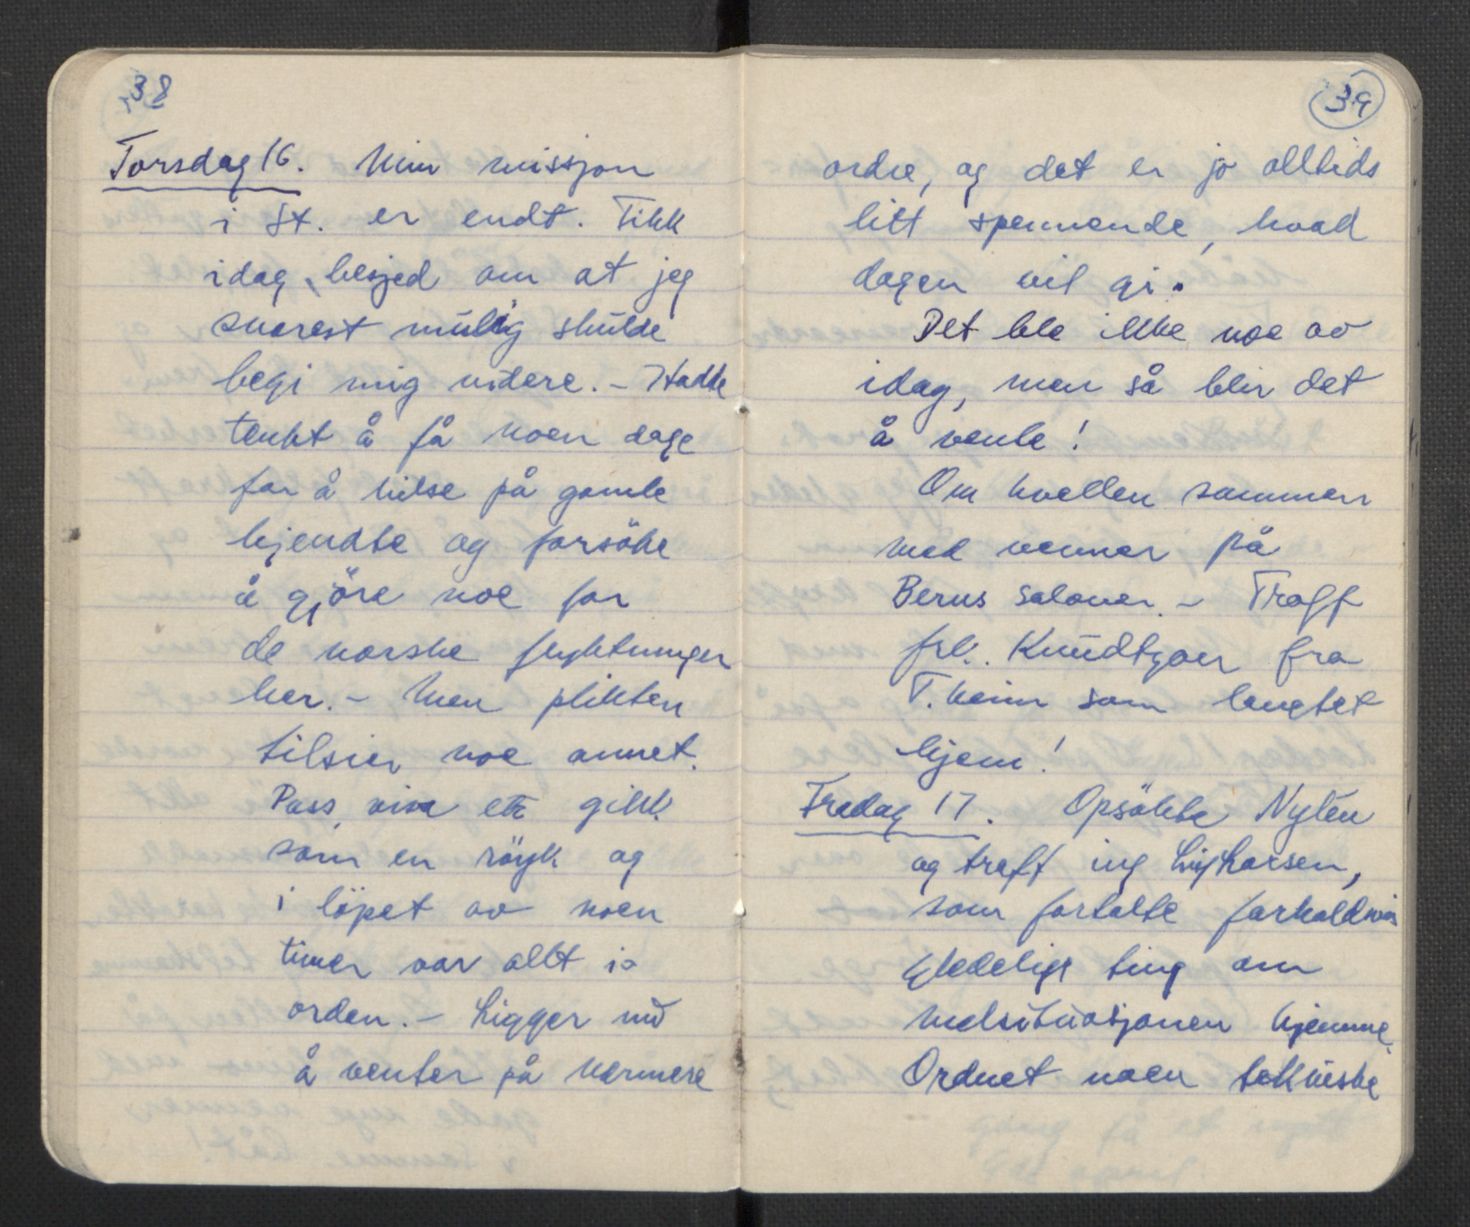 38
Torsdag 16. Min missjon
i St. er endt. Fikk
idag, besjed om at jeg
snarest mulig skulde
begi mig videre. – Hadde
tenkt å få noen dage
for å hilse på gamle
kjendte og forsöke
å gjöre noe for
de norske flyktninger
her. – Men plikten
tilsier noe annet.
Pass, visa etc gikk
som en röyk og
i löpet av noen
timer var allt i
orden. – Ligger nu
å venter på nærmere
39
ordre, og det er jo alltids
litt spennende, hvad
dagen vil gi.
Det ble ikke noe av
idag, men så blir det
å vente!
Om kvellen sammen
med venner på
Berns Saloner. – Traff
frl. Knudtzon fra
T.heim som lengtet
hjem!
Fredag 17. Opsökte Nylén
og traff ing Larsen,
som fortalte forholdvis
gledelige ting om
matsituasjonen hjemme.
Ordnet noen tekniske